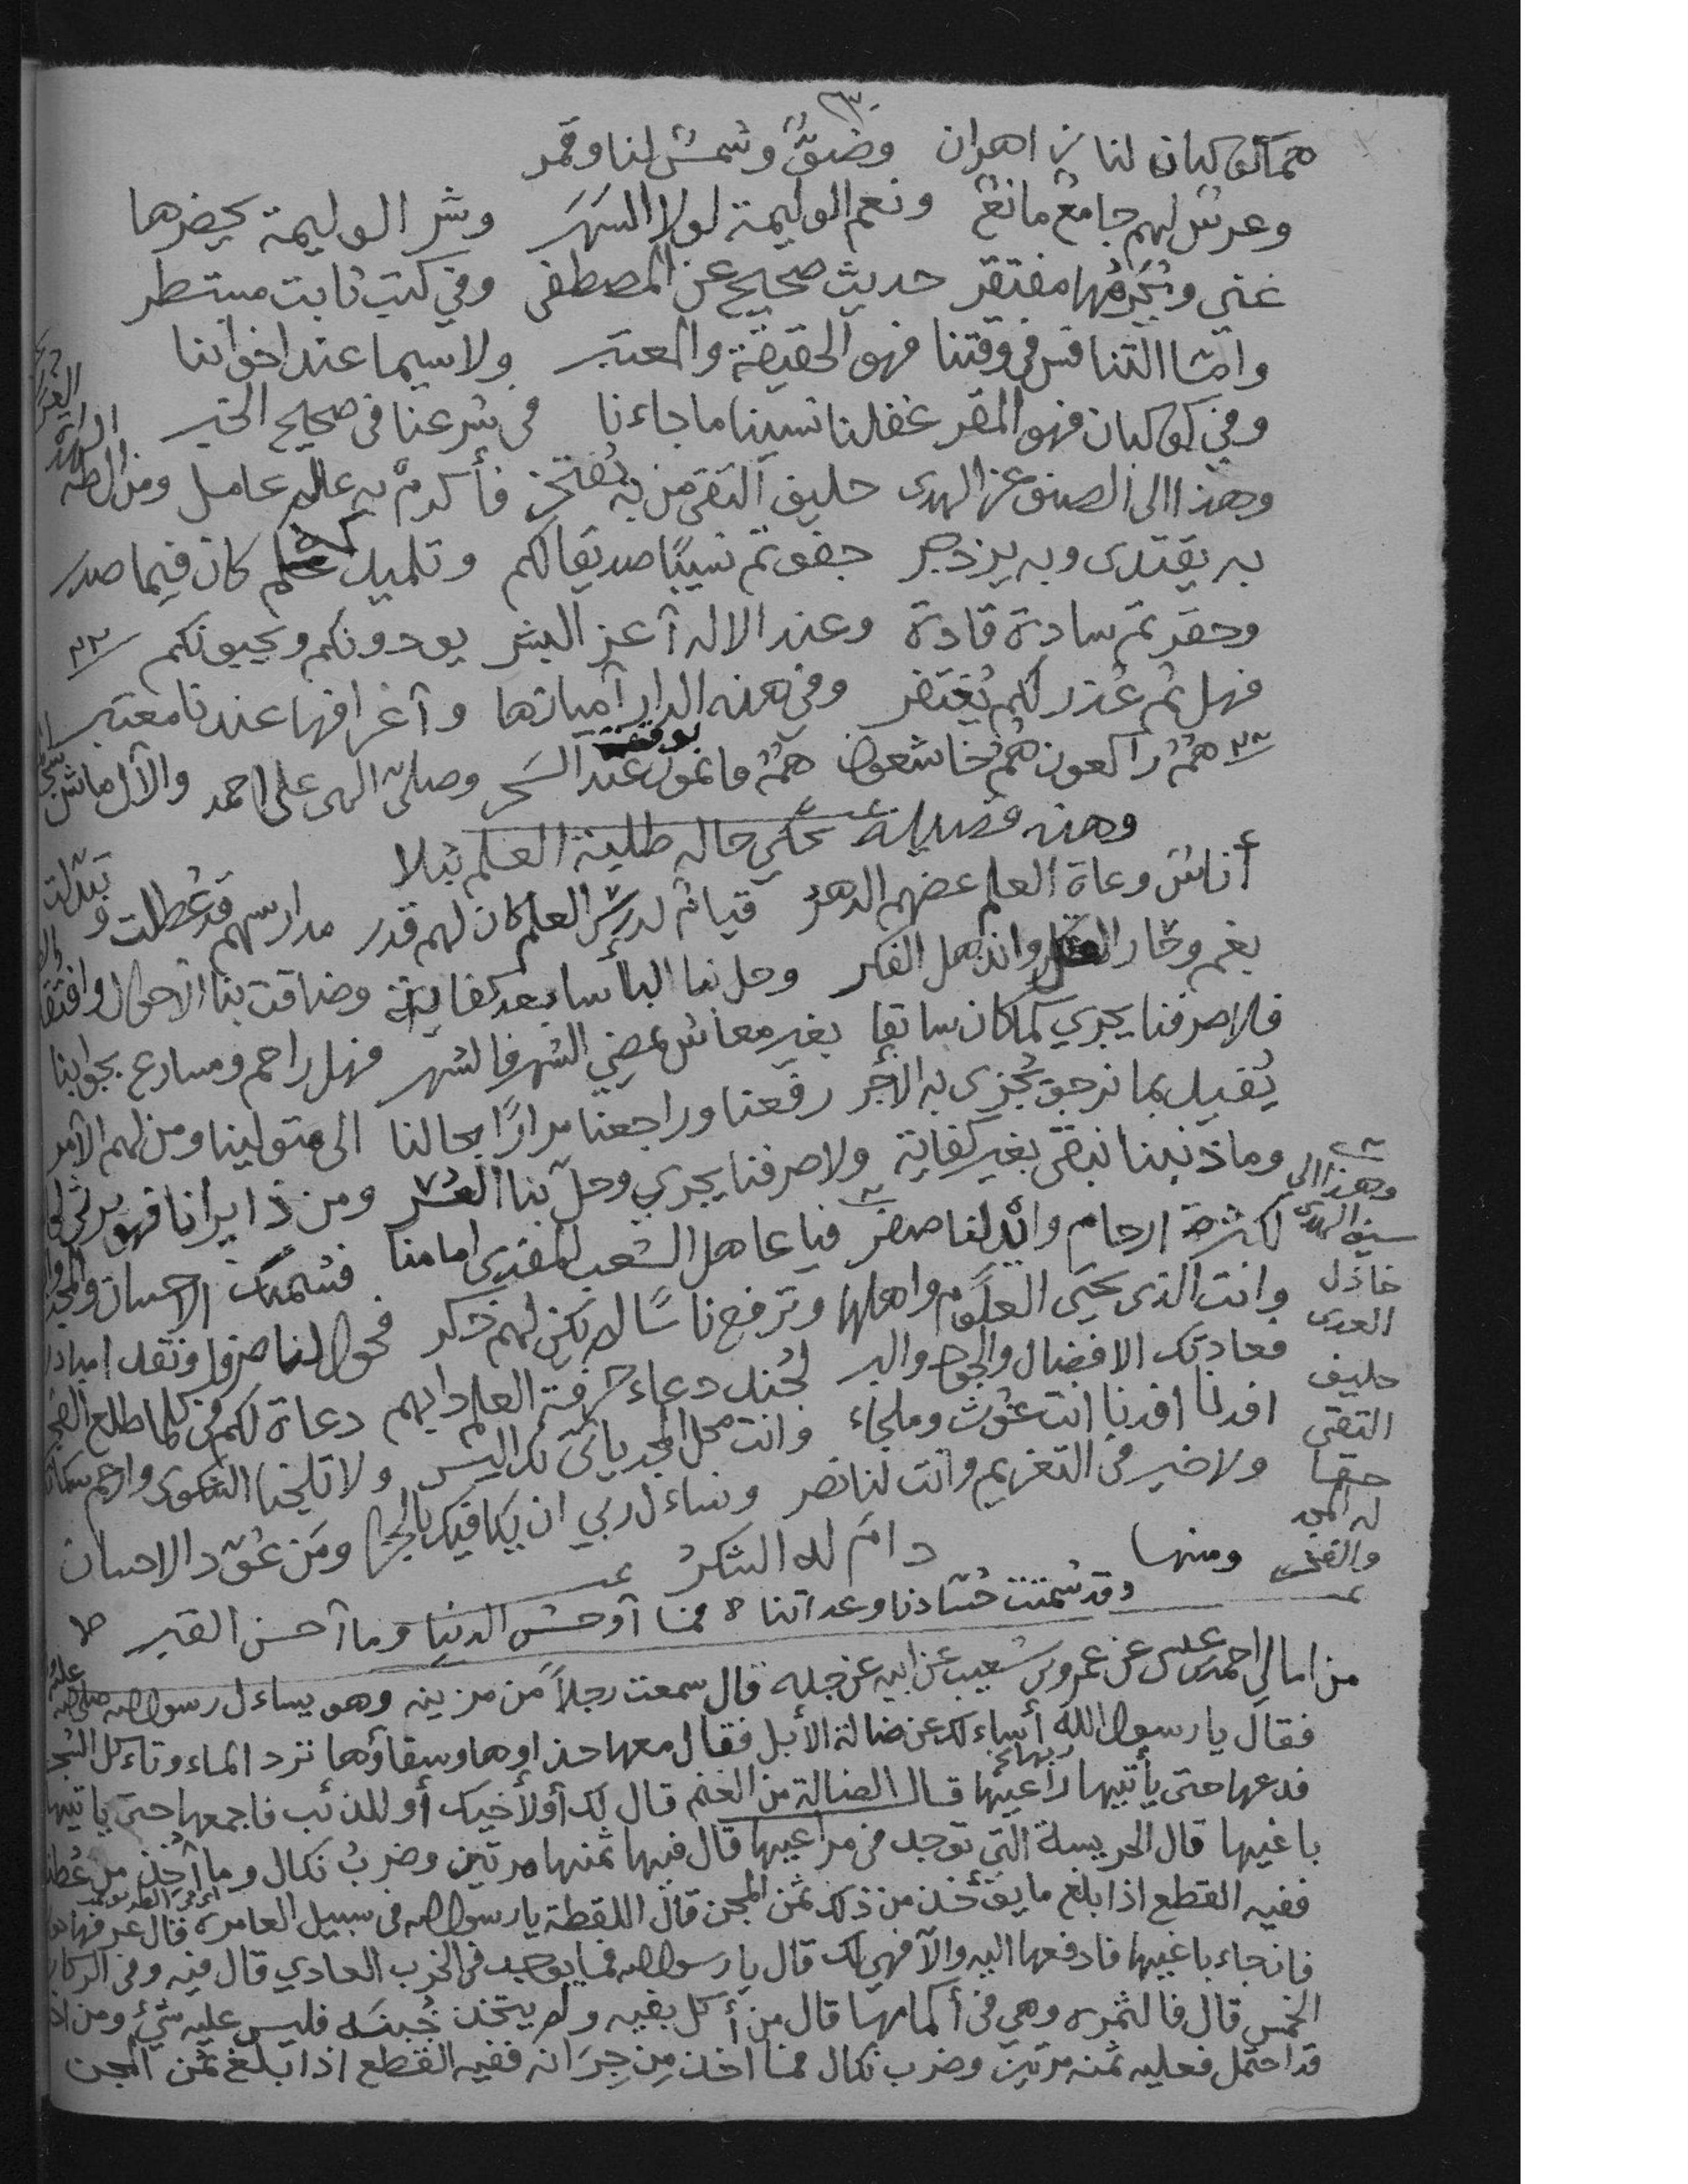 كوكبان لنا وضوء وشمس لنا وقمر
وعرش لهم جامع مانع ونعم الوليمة لولا السهر وشر الوليمة يحضرها
غني ويحرمها مفتقر حديث صحيح عن المصطفى وفي كتب ثابت مستطر
وامثا التنافس في وقتنا فهو الحقيقة والمعتبر ولاسيما عند اخواننا
وفي كوكبان فهو المقر غفلنا نسينا ما جاءنا في شرعنا في صحيح الخبر
وهذا الى الصنو عز الهدى حليف التقى من به يفتخر فأكرم به عالم عامل
به يقتدى وبه يزدجر جفوتم نسيبا صديقا لكم وتلميذكم كان فيما صدر
وحقرتم سادة قادة وعند الاله آعز البشر يودونكم ويحبونكم
فهل ثم عذر لكم يغتفر وفي هذه الدار آمياتها وآعرافها عندنا معتبر
هم راكعون هم خاشعون هم قائمون بوقت السحر وصل الهي على احمد والآل ما شن
وهذه قصيدة تحكي حاله طلبة العلم بثلا
أناس وعاة العلم عضهم الدهر قيام لدرس العلم كان لهم قدر مدارسهم قد عطلت وتبدلت
بغم وحار العقل وانذهل الفكر وحل بنا البأسا بعد كفاية وضاقت بنا الاحوال
فلا صرفنا يجري كما كان سابقا بغير معاش يمضي الشهر فالشهر فهل راحم ومسارع بجوابنا
يقبل بما نرجو يجزى به الأجر رفعنا وراجعنا مرارا بحالنا الى متولينا ومن لهم الأمر
وما ذنبنا نبقى بغير كفاية ولا صرفنا يجري وحل بنا العسر ومن ذا يرانا فهو يرثي
لكثرة ارحام وائد لنا صفر فيا عاهل الشعب المفدى امامنا فشيمتك الاحسان
وانت الذي يحيى العلوم واهلها وترفع ناسا لم يكن لهم ذكر فحول لنا صرفا ونقدا
فعادتك الافضال والجود والبر لجند دعاء حرفة العلم دابهم دعاة لكم في كلما طلع الفجر
افدنا افدنا انت غوث وملجاء وانت محل المجد ياتي بك اليسر ولا تلجنا الشكوى وارحم
ولا خير في التغريم وانت لنا نصر ونساءل ربي ان يكافيك بالجزا ومن عوّد الاحسان
دام له الشكر
وهذا الى
سيف الهدى
خاذل
العدى
حليف
التقى
حقا
له المجد
والفخر
ومنها
وقد شمتت حسادنا وعداتنا فما آوحش الدنيا وما آحسن القبر
من امالي احمد بن عيسى عن عمرو بن شعيب عن ابيه عن جده قال سمعت رجلا من مزينه وهو يساءل رسول الله صلى الله عليه
فقال يا رسول الله أساءلك عن ضالة الأبل فقال معها حذاوها وسقاؤها ترد الماء وتاءكل الشجر
فدعها حتى يأتيها راعيها قال الضالة من الغنم قال لك أو لأخيك أو للذئب فاجمعها حتى ياتيها
باغيها قال الحريسة التي توجد في مراعيها قال فيها ثمنها مرتين وضرب نكال وما أخذ من عطنه
ففيه القطع اذا بلغ ما يؤخذ من ذلك ثمن المجن قال اللقطة يا رسول الله في سبيل العامره قال عرفها
فان جاء باغيها فادفعها اليه والآ فهي لك قال يا رسول الله فما يوجد في الخرب العادي قال فيه وفي الركاز
الخمس قال فالثمره وهي في أكمامها قال من أكل بفيه ولم يتخذ خبنه فليس عليه شيء ومن
قد احتمل فعليه ثمنه مرتين وضرب نكال فما اخذ من جرانه ففيه القطع اذا بلغ ثمن المجن